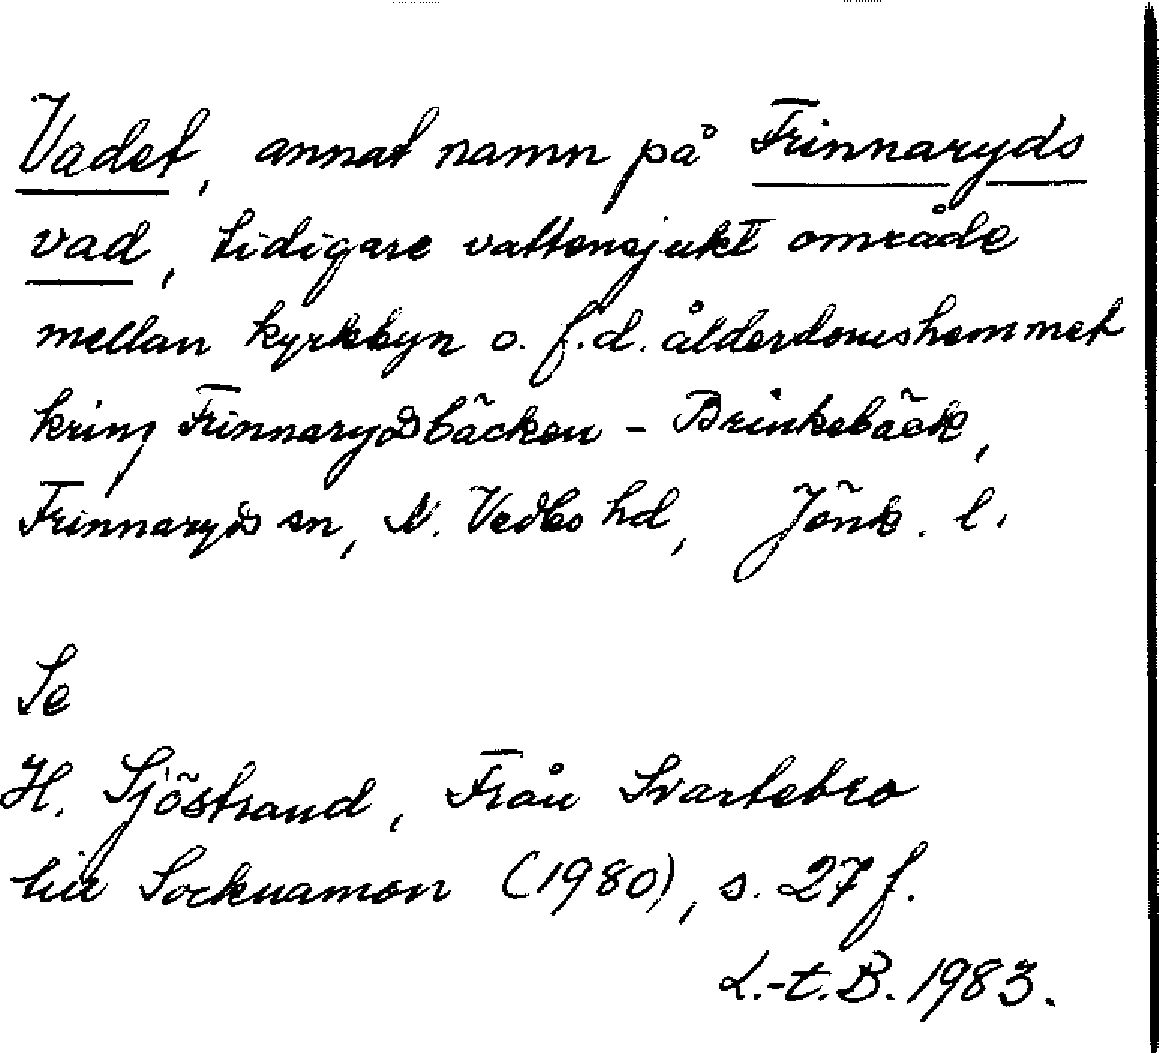 Vadet, annat namn på Frinnaryds
vad, tidigare vattensjukt område
mellan kyrkbyn o. f.d. ålderdomshemmet
kring Frinnarydsbäcken - Brinkebäck,
Frinnaryds sn, N. Vedbo hd, Jönk. l.
Se
H. Sjöstrand, Från Svartebro
till Socknamon (1980), s. 27 f.
L.-t. B. 1983.